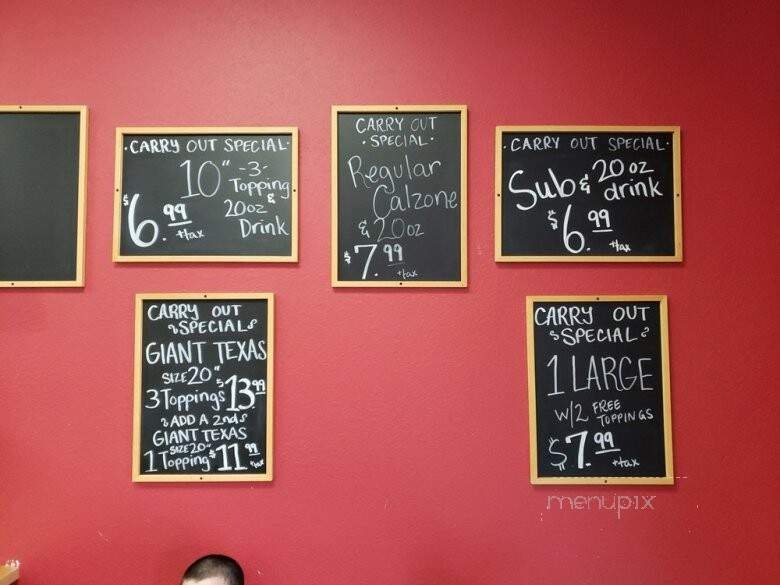 ·CARRY OUT SPECIAL·
10" -3-
Topping
&
$6.99 20oz
+tax Drink
CARRY OUT
·SPECIAL·
Regular
Calzone
& 20oz
$7.99
+tax
·CARRY OUT SPECIAL·
Sub & 20 oz
drink
$6.99
+tax
CARRY OUT
SPECIAL
GIANT TEXAS
SIZE 20"
3 Toppings $13.99
ADD A 2nd
GIANT TEXAS
SIZE 20"
1 Topping $11.99
+tax
CARRY OUT
SPECIAL
1 LARGE
W/2 FREE
TOPPINGS
$7.99
+tax
menupix